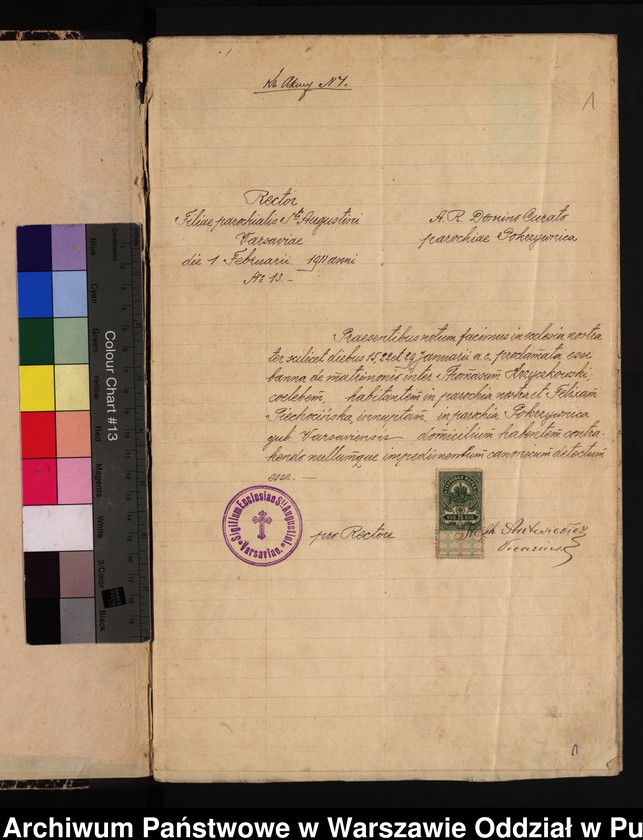 Kb Akwy N 1.
1
Rector
Filiae parochialis Sti Augustini
Varsaviae
die 1 Februarii 1911 anni
№ 13. -
A. R. Domino Curato
parochiae Pokrzywnica
Praesentibus notum facimus in eclesia nostra
ter scilicet diebus 15, 22 et 29 januarii a. c. proclamata esse
banna de matrimonio inter Thomasum Krzyczkowski
coelebem, habitantem in parochia nostra et Felixam
Piechocińska, innuptam, in parochia Pokrzywnica
gub Varsaviensis domicilium habentem contra-
hendo nullumque impedimentum canonicum detectum
esse. —
Sigillum Ecclesiae Sti Augustini
Varsaviae.
pro Rectore
75 КОП 75
Vicarius
1
Colour Chart #13
Centimetres
Blue
Cyan
Green
Yellow
Red
Magenta
White
3/Color
Black
Archiwum Państwowe w Warszawie Oddział w Pu